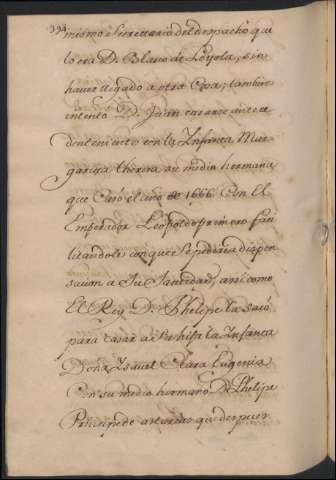 394
mismo Secrettario del despacho que
lo era D. Blasco de Loyola, sin
hauer llegado a otra Cosa; tambien
intento D. Juan casarse antes
con la Infanta Mar-
garita theresa su media hermana
que Casó el año de 1666 Con El
Emperador Leopoldo primero faci-
litandole con que se pediria dispen-
sacion a Su Santidad, assi como
El Rey D. Phelipe la sacó
para casar a Su hija la Infanta
Doña Isauel Clara Eugenia
Con su medio hermano D. Phelipe
Principe de asturias que despues